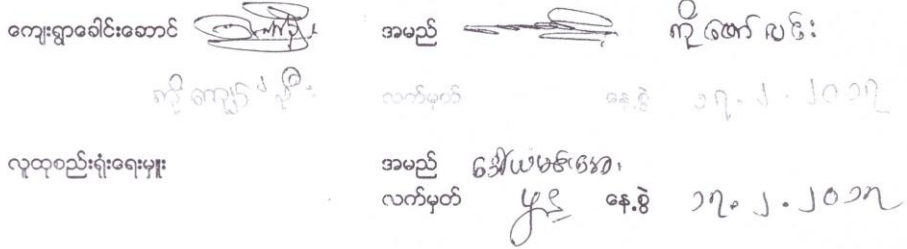 ကျေးရွာခေါင်းဆောင် အမည် ကိုဇော်လင်း
ကိုကျော် လက်မှတ် နေ့စွဲ ၁၇.၂.၂၀၁၇
လူထုစည်းရုံးရေးမှူး အမည် ဒေါ်ယမင်းအေး
လက်မှတ် နေ့စွဲ ၁၇.၂.၂၀၁၇